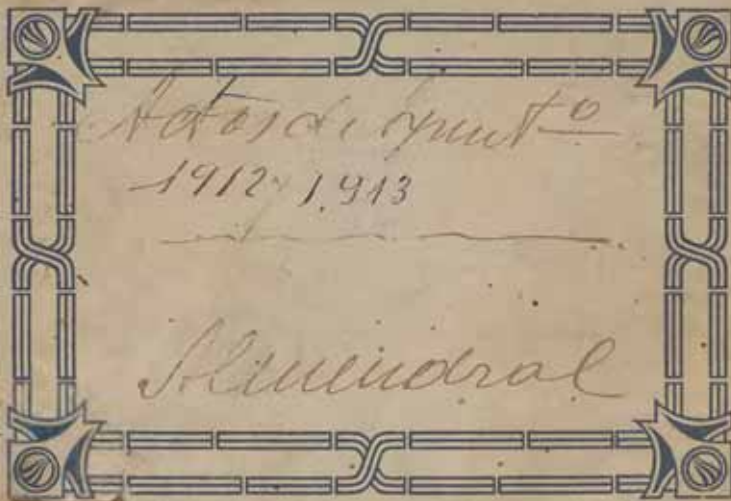 Actas de Ayunt.º
1912 y 1.913
Almendral